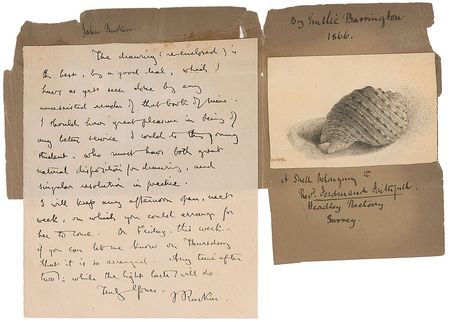 John Ruskin.
The drawing (re-enclosed) is
the best, by a good deal, which I
have as yet seen done by any
unassisted reader of that book of mine.
I should have great pleasure in being of
any better service I could to this young
student - who must have both great
natural disposition for drawing, and
singular resolution in practice.
I will keep any afternoon open, next
week, on which you could arrange for
her to come. Or Friday, this week -
if you can let me know on Thursday
that it is so arranged. Any time after
two; while the light lasts, will do.
Truly Yours.
J Ruskin.
By Emilie Barrington
1866.
A Shell belonging to
Rev. Ferdinand
Headley Rectory
Surrey.